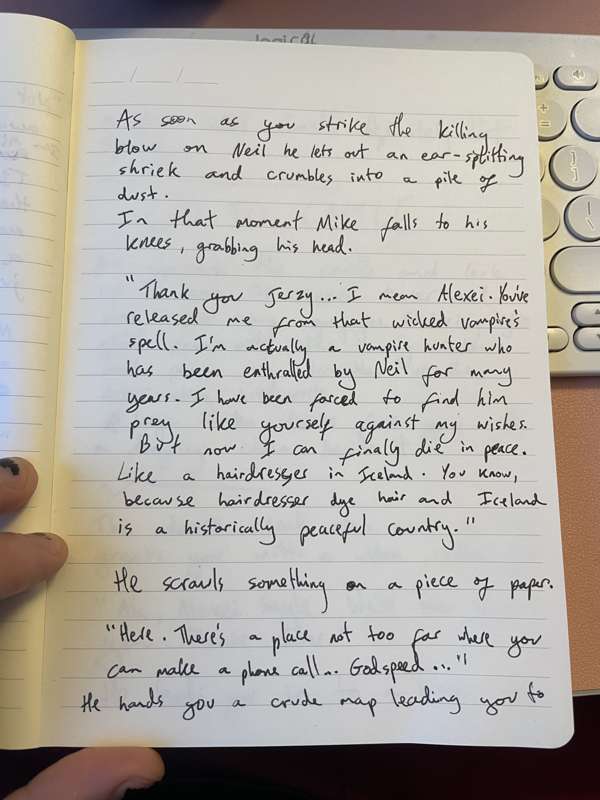 logical
/ /
As soon as you strike the killing
blow on Neil he lets out an ear-splitting
shriek and crumbles into a pile of
dust.
In that moment Mike falls to his
knees, grabbing his head.
"Thank you Jerzy... I mean Alexei. You've
released me from that wicked vampire's
spell. I'm actually a vampire hunter who
has been enthralled by Neil for many
years. I have been forced to find him
prey like yourself against my wishes.
But now I can finally die in peace.
Like a hairdresser in Iceland. You know,
because hairdresser dye hair and Iceland
is a historically peaceful country."
He scrawls something on a piece of paper.
"Here. There's a place not too far where you
can make a phone call... Godspeed..."
He hands you a crude map leading you to